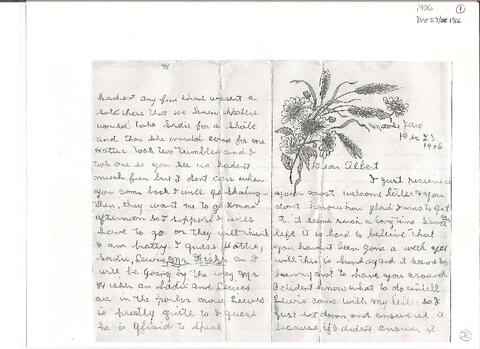 1906
①
Dec 23/1906
Moose Jaw
Dec 23
1906
Dear Albert
I just received
your most welcome letter & you
don't know how glad I was to get
it. it seems such a long time since you
left it is hard to believe that
you haven't been gone a week
will this is Sunday and it seems so
funny not to have you around
I didn't know what to do untill
Lewis came with my letter so I
just sat down and answered it
because if I didn't answer it
hadent any fun
there
would take Sadie for a skate
and then she would come for me
Hattie had two tumbles and I
had one so you see we hadent
much fun but I dont care when
you come back I will go skating
then, they want me to go Xmas
afternoon so I suppose I will
have to go or they will think
I am batty. I guess Hattie,
Sadie, Lewis, Mr. Fisher an I
will be going by the way Mr
Fisher an Sadie and Lewis
are in the parlor now Lewis
is pretty quite to I guess
he is afraid to speak
②